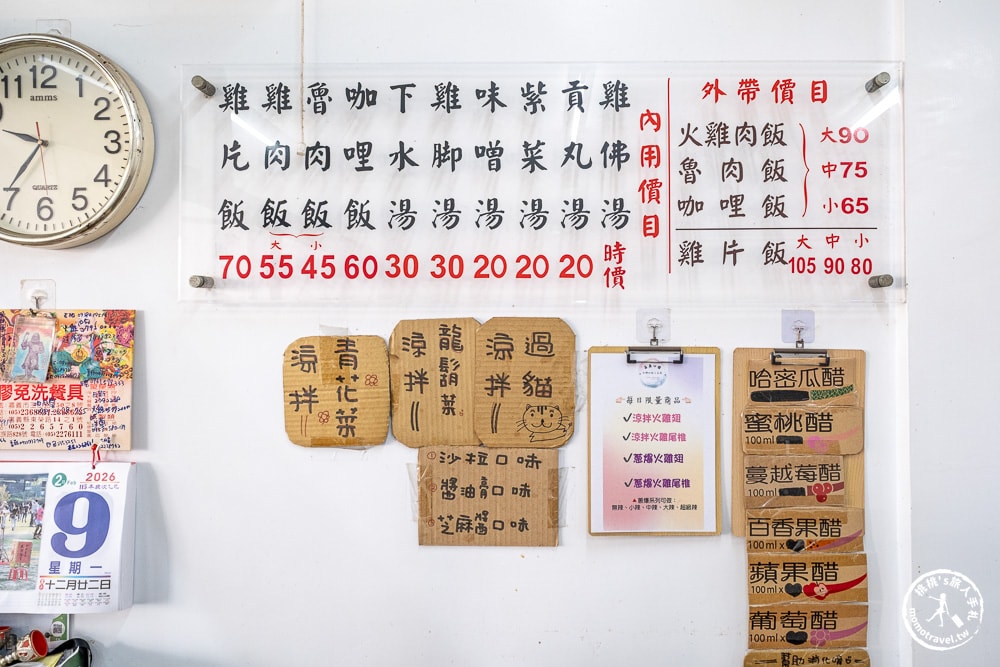 12
1
2
3
4
5
6
7
11
amms
QUARTZ
雞片飯 70
雞肉飯 大 55
魯肉飯 小 45
咖哩飯 60
下水湯 30
雞脚湯 30
味噌湯 20
紫菜湯 20
貢丸湯 20
雞佛湯 時價
內用價目
外帶價目
火雞肉飯
魯肉飯
咖哩飯
大90
中75
小65
雞片飯
大 中 小
105 90 80
膠免洗餐具
2026
9
星期一
十二月廿二日
青花菜
涼拌
龍鬚菜
涼拌
過貓
涼拌
①沙拉口味
②醬油膏口味
③芝麻醬口味
每日限量商品
✓涼拌火雞翅
✓涼拌火雞尾椎
✓蔥爆火雞翅
✓蔥爆火雞尾椎
▲蔥爆系列可做:
無辣、小辣、中辣、大辣、超級辣
哈密瓜醋
蜜桃醋
100ml x
蔓越莓醋
100ml x
百香果醋
100ml x
蘋果醋
100ml x
葡萄醋
100ml x
幫助消化
momotravel.tw